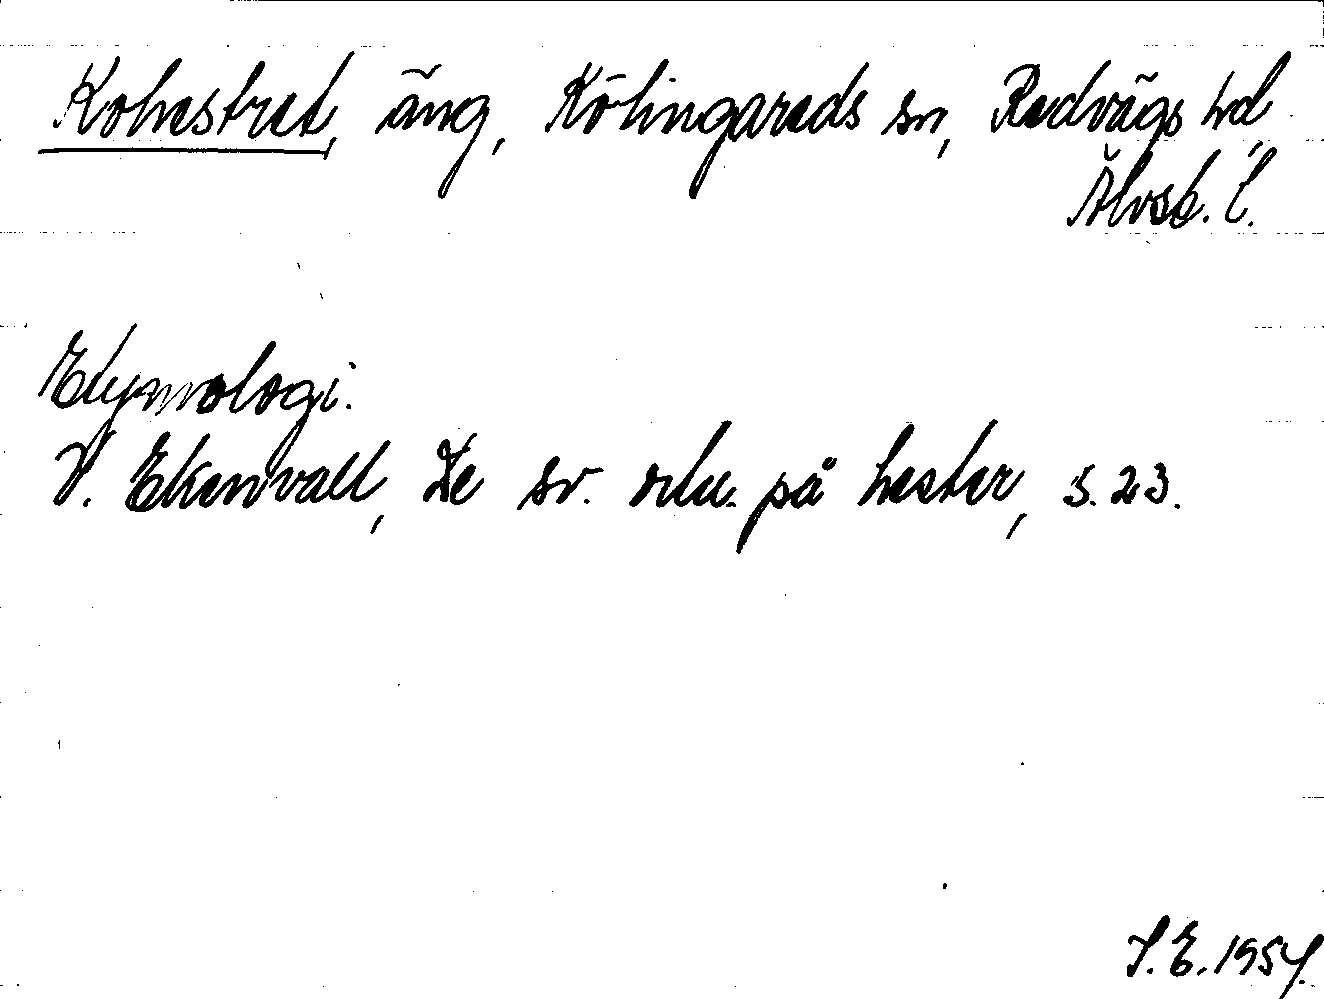 Kohestret, äng, Kölingareds sn, Redvägs hd,
Älvsb. l.
Etymologi.
V. Ekenvall, De sv. ortn. på hester, s. 23.
I. E. 1954.